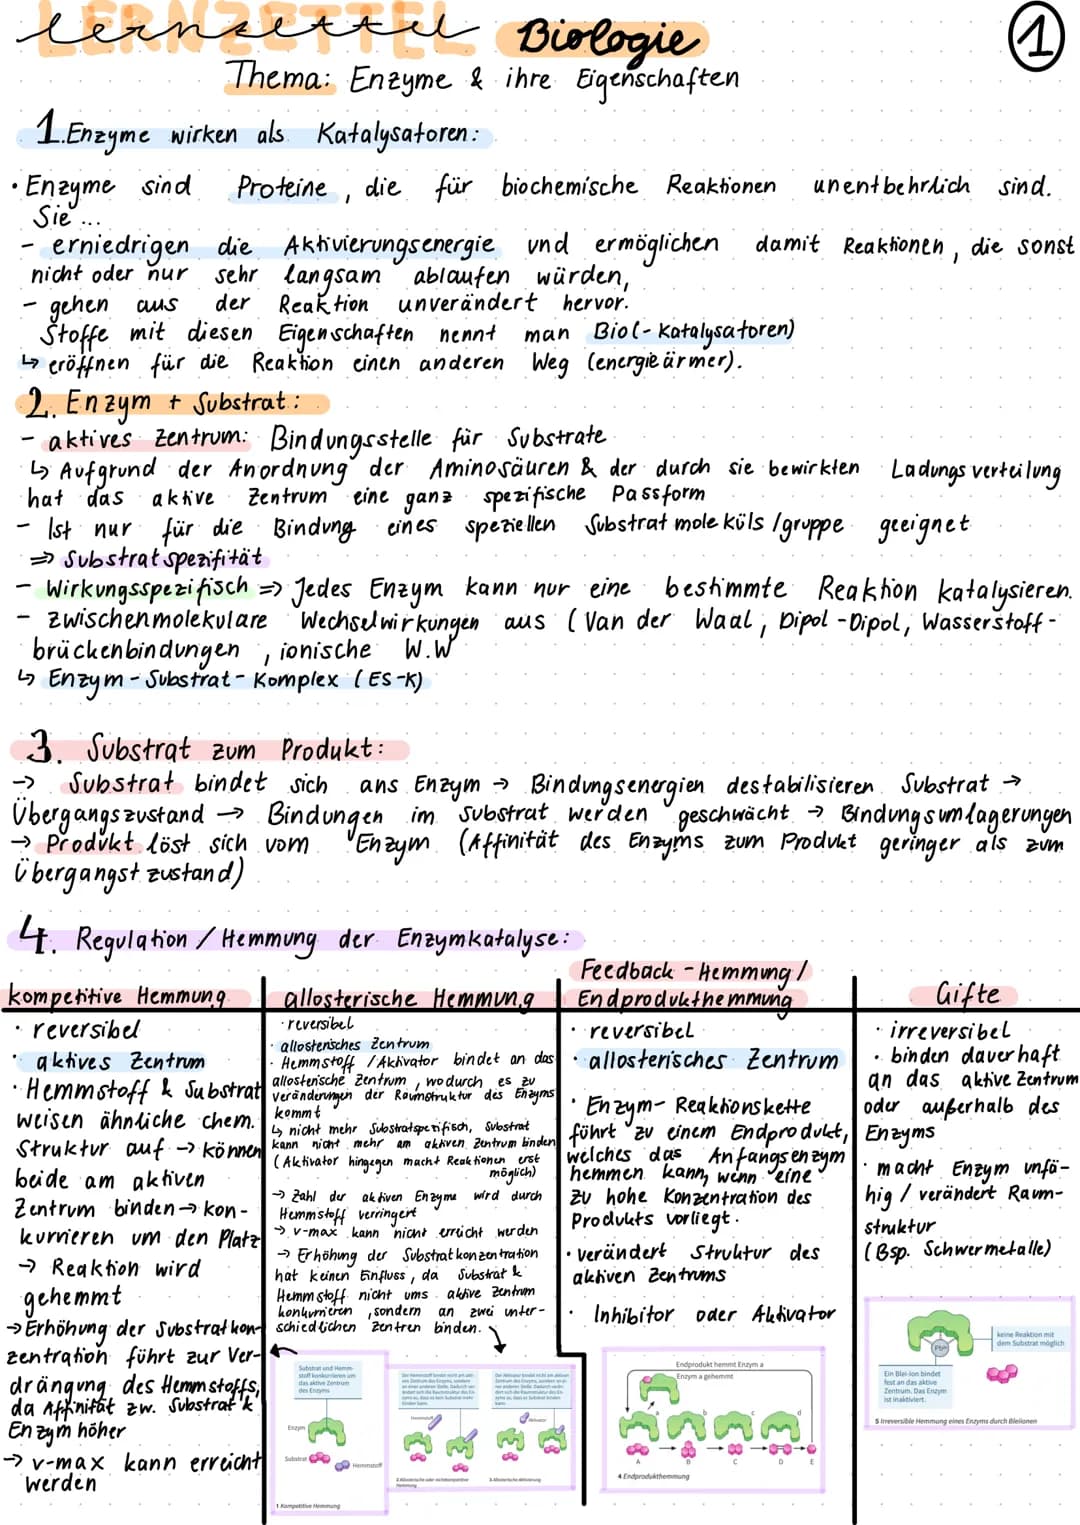 LERNZETTEL
lernzettel Biologie
1
Thema: Enzyme & ihre Eigenschaften
1. Enzyme wirken als Katalysatoren:
· Enzyme sind Proteine, die für biochemische Reaktionen unentbehrlich sind.
Sie ...
- erniedrigen die Aktivierungsenergie und ermöglichen damit Reaktionen, die sonst
nicht oder nur sehr langsam ablaufen würden,
- gehen aus der Reaktion unverändert hervor.
Stoffe mit diesen Eigenschaften nennt man Bio(-Katalysatoren)
↳ eröffnen für die Reaktion einen anderen Weg (energieärmer).
2. Enzym + Substrat:
- aktives Zentrum: Bindungsstelle für Substrate
↳ Aufgrund der Anordnung der Aminosäuren & der durch sie bewirkten Ladungsverteilung
hat das aktive Zentrum eine ganz spezifische Passform
- Ist nur für die Bindung eines speziellen Substratmoleküls/gruppe geeignet
⇒ Substratspezifität
- Wirkungsspezifisch ⇒ Jedes Enzym kann nur eine bestimmte Reaktion katalysieren.
- zwischenmolekulare Wechselwirkungen aus (Van der Waal, Dipol-Dipol, Wasserstoff-
brückenbindungen, ionische W.W
↳ Enzym-Substrat-Komplex (ES-K)
3. Substrat zum Produkt:
→ Substrat bindet sich ans Enzym → Bindungsenergien destabilisieren Substrat →
Übergangszustand → Bindungen im Substrat werden geschwächt → Bindungsumlagerungen
→ Produkt löst sich vom Enzym (Affinität des Enzyms zum Produkt geringer als zum
Übergangstzustand)
4. Regulation/Hemmung der Enzymkatalyse:
kompetitive Hemmung
· reversibel
· aktives Zentrum
· Hemmstoff & Substrat
weisen ähnliche chem.
Struktur auf → können
beide am aktiven
Zentrum binden → kon-
kurrieren um den Platz
→ Reaktion wird
gehemmt
→ Erhöhung der Substratkon-
zentration führt zur Ver-
drängung des Hemmstoffs,
da Affinität zw. Substrat &
Enzym höher
→ v-max kann erreicht
werden
allosterische Hemmung
· reversibel
· allosterisches Zentrum
· Hemmstoff/Aktivator bindet an das
allosterische Zentrum, wodurch es zu
veränderungen der Raumstruktur des Enzyms
kommt
↳ nicht mehr Substratspezifisch, Substrat
kann nicht mehr am aktiven Zentrum binden
(Aktivator hingegen macht Reaktionen erst
möglich)
→ Zahl der aktiven Enzyme wird durch
Hemmstoff verringert
→ v-max kann nicht erreicht werden
→ Erhöhung der Substratkonzentration
hat keinen Einfluss, da Substrat &
Hemmstoff nicht ums aktive Zentrum
konkurrieren, sondern an zwei unter-
schiedlichen Zentren binden.
Substrat und Hemm-
stoff konkurrieren um
das aktive Zentrum
des Enzyms
Enzym
Substrat
Hemmstoff
1 Kompetitive Hemmung
Hemmstoff
2 Allosterische oder nichtkompetitive
Hemmung
Aktivator
3 Allosterische Aktivierung
Feedback-Hemmung/
Endprodukthemmung
· reversibel
· allosterisches Zentrum
· Enzym-Reaktionskette
führt zu einem Endprodukt,
welches das Anfangsenzym
hemmen kann, wenn eine
zu hohe Konzentration des
Produkts vorliegt.
· verändert Struktur des
aktiven Zentrums
· Inhibitor oder Aktivator
Endprodukt hemmt Enzym a
Enzym a gehemmt
a b c d
A B C D E
4 Endprodukthemmung
Gifte
· irreversibel
· binden dauerhaft
an das aktive Zentrum
oder außerhalb des
Enzyms
· macht Enzym unfä-
hig/verändert Raum-
struktur
(Bsp. Schwermetalle)
Pb²⁺
keine Reaktion mit
dem Substrat möglich
Ein Blei-Ion bindet
fest an das aktive
Zentrum. Das Enzym
ist inaktiviert.
5 Irreversible Hemmung eines Enzyms durch Bleiionen